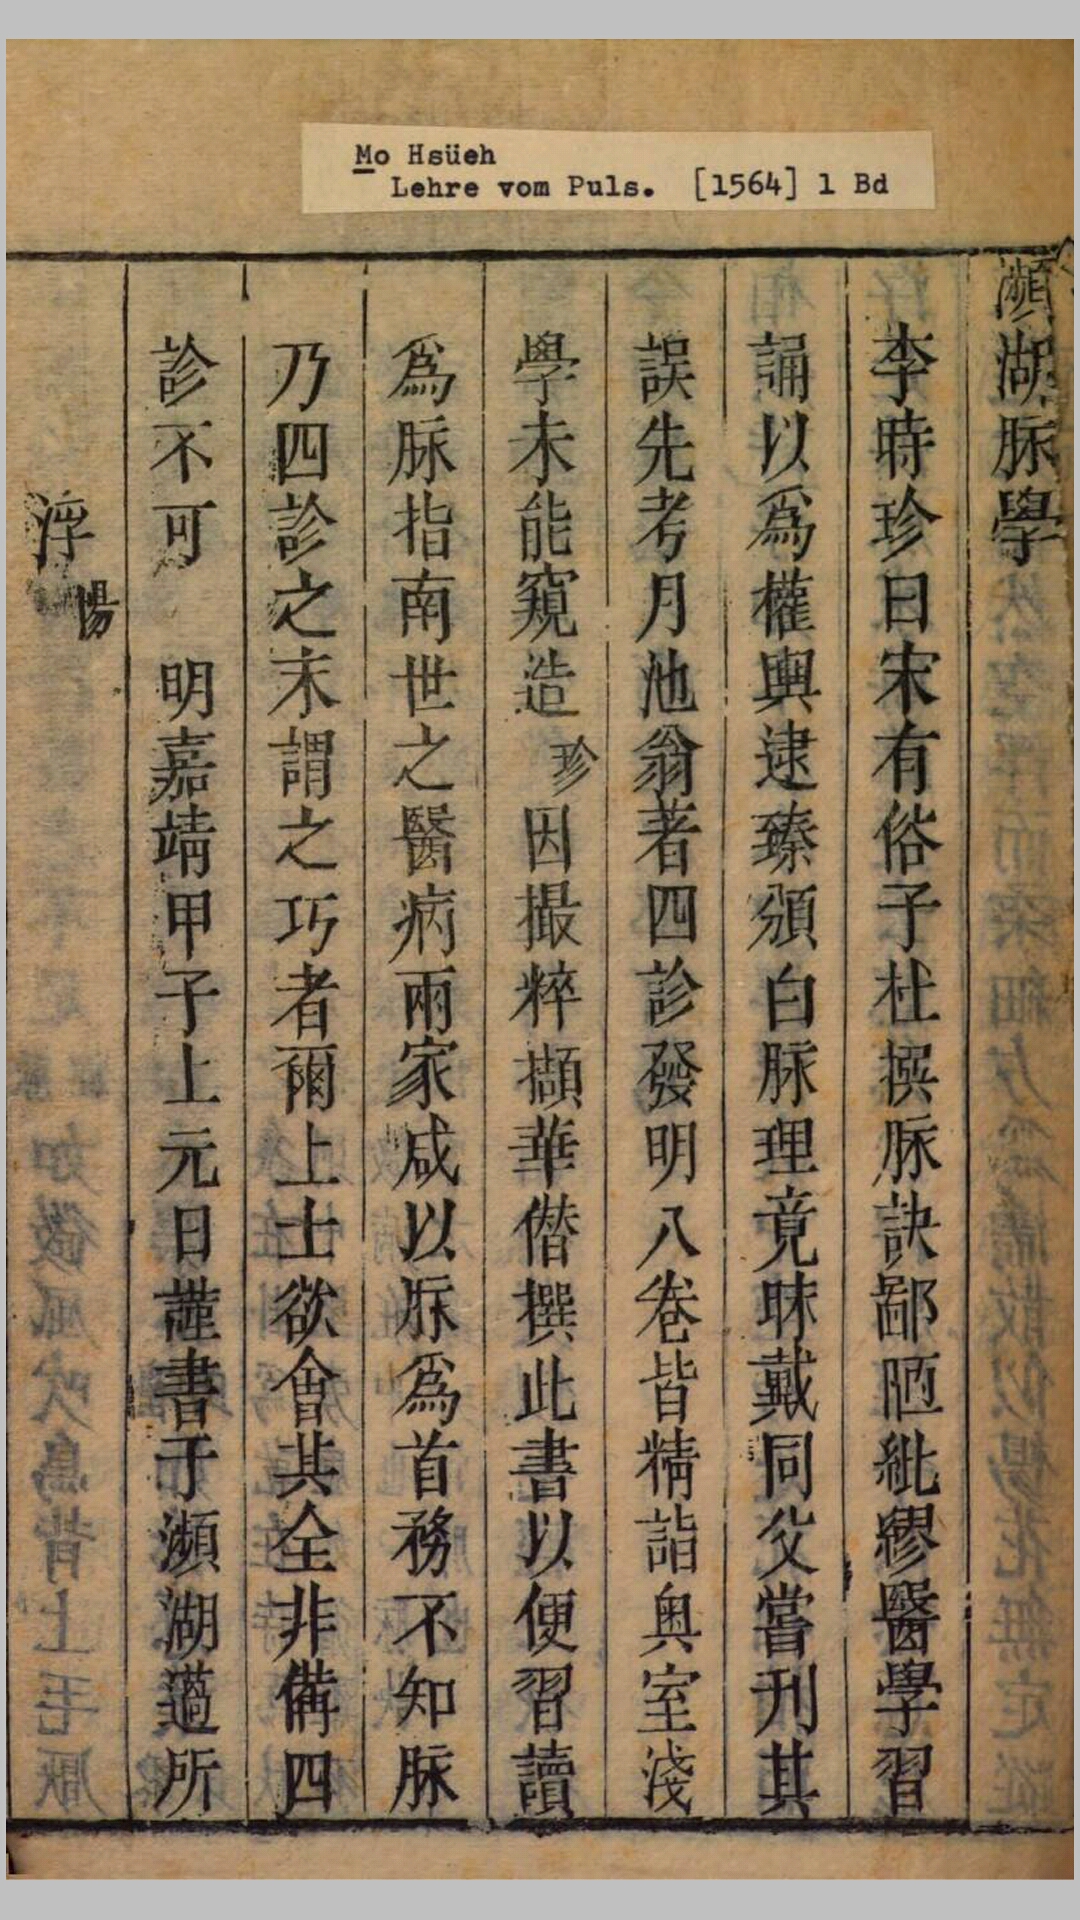 Mo Hsüeh
Lehre vom Puls. [1564] 1 Bd
瀕湖脉學
李時珍曰宋有俗子杜撰脉訣鄙陋紕繆醫學習
誦以爲權輿逮臻頒白脉理竟昧戴同父嘗刊其
誤先考月池翁著四診發明八卷皆精詣奥室淺
學未能窺造珍因撮粹擷華僣撰此書以便習讀
爲脉指南世之醫病兩家咸以脉爲首務不知脉
乃四診之末謂之巧者爾上士欲會其全非備四
診不可 明嘉靖甲子上元日謹書于瀕湖薖所
浮 陽